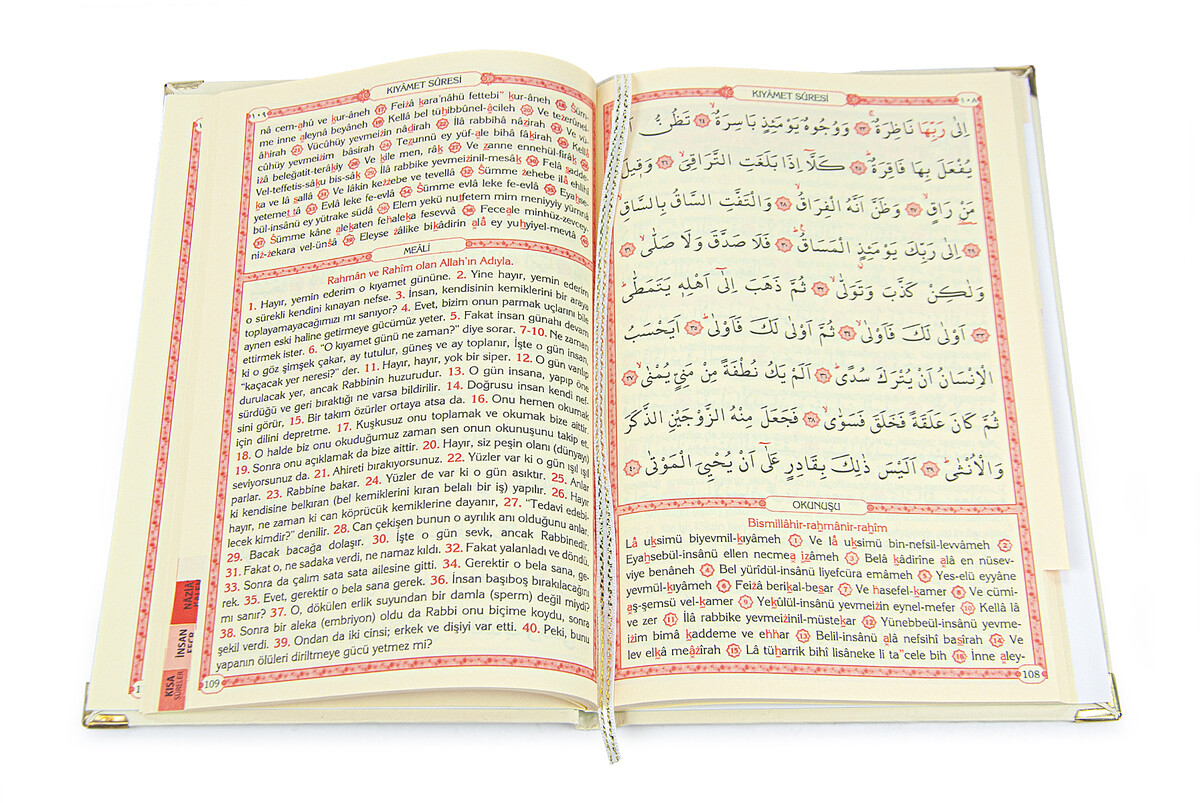 KIYÂMET SÛRESİ
١٠٨
اِلٰى رَبِّهَا نَاظِرَةٌۚ ﴿٢٣﴾ وَوُجُوهٌ يَوْمَئِذٍ بَاسِرَةٌۙ ﴿٢٤﴾ تَظُنُّ
يُفْعَلَ بِهَا فَاقِرَةٌۜ ﴿٢٥﴾ كَلَّٓا اِذَا بَلَغَتِ التَّرَاقِيَۙ ﴿٢٦﴾ وَق۪يلَ
مَنْ رَاقٍۙ ﴿٢٧﴾ وَظَنَّ اَنَّهُ الْفِرَاقُۙ ﴿٢٨﴾ وَالْتَفَّتِ السَّاقُ بِالسَّاقِۙ
﴿٢٩﴾ اِلٰى رَبِّكَ يَوْمَئِذٍ الْمَسَاقُۜ ﴿٣٠﴾ فَلَا صَدَّقَ وَلَا صَلّٰىۙ ﴿٣١﴾
وَلٰكِنْ كَذَّبَ وَتَوَلّٰىۙ ﴿٣٢﴾ ثُمَّ ذَهَبَ اِلٰٓى اَهْلِه۪ يَتَمَطّٰىۜ
﴿٣٣﴾ اَوْلٰى لَكَ فَاَوْلٰىۙ ﴿٣٤﴾ ثُمَّ اَوْلٰى لَكَ فَاَوْلٰىۜ ﴿٣٥﴾ اَيَحْسَبُ
الْاِنْسَانُ اَنْ يُتْرَكَ سُدًىۜ ﴿٣٦﴾ اَلَمْ يَكُ نُطْفَةً مِنْ مَنِيٍّ يُمْنٰىۙ ﴿٣٧﴾
ثُمَّ كَانَ عَلَقَةً فَخَلَقَ فَسَوّٰىۙ ﴿٣٨﴾ فَجَعَلَ مِنْهُ الزَّوْجَيْنِ الذَّكَرَ
وَالْاُنْثٰىۜ ﴿٣٩﴾ اَلَيْسَ ذٰلِكَ بِقَادِرٍ عَلٰٓى اَنْ يُحْيِيَ الْمَوْتٰى ﴿٤٠﴾
OKUNUŞU
Bismillâhir-rahmânir-rahîm
Lâ uksimü biyevmil-kıyâmeh 1 Ve lâ uksimü bin-nefsil-levvâmeh 2
Eyahsebül-insânü ellen necmea izâmeh 3 Belâ kâdirîne alâ en nüsev-
viye benâneh 4 Bel yürîdül-insânü liyefcüra emâmeh 5 Yes-elü eyyâne
yevmül-kıyâmeh 6 Feizâ berikal-besar 7 Ve hasefel-kamer 8 Ve cümi-
aş-şemsü vel-kamer 9 Yekûlül-insânü yevmeizin eynel-mefer 10 Kellâ lâ
ve zer 11 İlâ rabbike yevmeizinil-müstekar 12 Yünebbeül-insânü yevme-
izim bimâ kaddeme ve ehhar 13 Belil-insânü alâ nefsihî basîrah 14 Ve
lev elkâ meâzîrah 15 Lâ tüharrik bihî lisâneke li ta"cele bih 16 İnne aley-
108
KIYÂMET SÛRESİ
١٠٩
nâ cem-ahû ve kur-âneh 17 Feizâ kara'nâhü fettebi" kur-âneh 18 Süm-
me inne aleynâ beyâneh 19 Kellâ bel tühibbûnel-âcileh 20 Ve tezerûnel-
âhirah 21 Vücûhüy yevmeizin nâdirah 22 İlâ rabbihâ nâzirah 23 Ve vü-
cûhüy yevmeizim bâsirah 24 Tezunnü ey yüf-ale bihâ fâkirah 25 Kellâ
izâ beleğatit-terâkıy 26 Ve kîle men, râk 27 Ve zanne ennehül-firâk 28
Vel-teffetis-sâku bis-sâk 29 İlâ rabbike yevmeizinil-mesâk 30 Felâ sadde-
ka ve lâ sallâ 31 Ve lâkin kezzebe ve tevellâ 32 Sümme zehebe ilâ ehlihî
yetemettâ 33 Evlâ leke fe-evlâ 34 Sümme evlâ leke fe-evlâ 35 Eyahse-
bül-insânü ey yütrake südâ 36 Elem yekü nutfetem mim meniyyiy yümnâ
37 Sümme kâne alekaten fehaleka fesevvâ 38 Feceale minhüz-zevcey-
niz-zekara vel-ünsâ 39 Eleyse zâlike bikâdirin alâ ey yuhyiyel-mevtâ 40
MEÂLİ
Rahmân ve Rahîm olan Allah'ın Adıyla.
1. Hayır, yemin ederim o kıyamet gününe. 2. Yine hayır, yemin ederim
o sürekli kendini kınayan nefse. 3. İnsan, kendisinin kemiklerini bir araya
toplayamayacağımızı mı sanıyor? 4. Evet, bizim onun parmak uçlarını bile
aynen eski haline getirmeye gücümüz yeter. 5. Fakat insan günahı devam
ettirmek ister. 6. "O kıyamet günü ne zaman?" diye sorar. 7-10. Ne zaman
ki o göz şimşek çakar, ay tutulur, güneş ve ay toplanır, İşte o gün insan,
"kaçacak yer neresi?" der. 11. Hayır, hayır, yok bir siper. 12. O gün varılıp
durulacak yer, ancak Rabbinin huzurudur. 13. O gün insana, yapıp öne
sürdüğü ve geri bıraktığı ne varsa bildirilir. 14. Doğrusu insan kendi nef-
sini görür, 15. Bir takım özürler ortaya atsa da. 16. Onu hemen okumak
için dilini depretme. 17. Kuşkusuz onu toplamak ve okumak bize aittir.
18. O halde biz onu okuduğumuz zaman sen onun okunuşunu takip et.
19. Sonra onu açıklamak da bize aittir. 20. Hayır, siz peşin olanı (dünyayı)
seviyorsunuz da. 21. Ahireti bırakıyorsunuz. 22. Yüzler var ki o gün ışıl ışıl
parlar. 23. Rabbine bakar. 24. Yüzler de var ki o gün asıktır. 25. Anlar
ki kendisine belkıran (bel kemiklerini kıran belalı bir iş) yapılır. 26. Hayır
hayır, ne zaman ki can köprücük kemiklerine dayanır, 27. "Tedavi edebi-
lecek kimdir?" denilir. 28. Can çekişen bunun o ayrılık anı olduğunu anlar.
29. Bacak bacağa dolaşır. 30. İşte o gün sevk, ancak Rabbinedir.
31. Fakat o, ne sadaka verdi, ne namaz kıldı. 32. Fakat yalanladı ve döndü.
33. Sonra da çalım sata sata ailesine gitti. 34. Gerektir o bela sana, ge-
rek. 35. Evet, gerektir o bela sana gerek. 36. İnsan başıboş bırakılacağını
mı sanır? 37. O, dökülen erlik suyundan bir damla (sperm) değil miydi?
38. Sonra bir aleka (embriyon) oldu da Rabbi onu biçime koydu, sonra
şekil verdi. 39. Ondan da iki cinsi; erkek ve dişiyi var etti. 40. Peki, bunu
yapanın ölüleri diriltmeye gücü yetmez mi?
109
İNSAN
KISA
SÛRELER